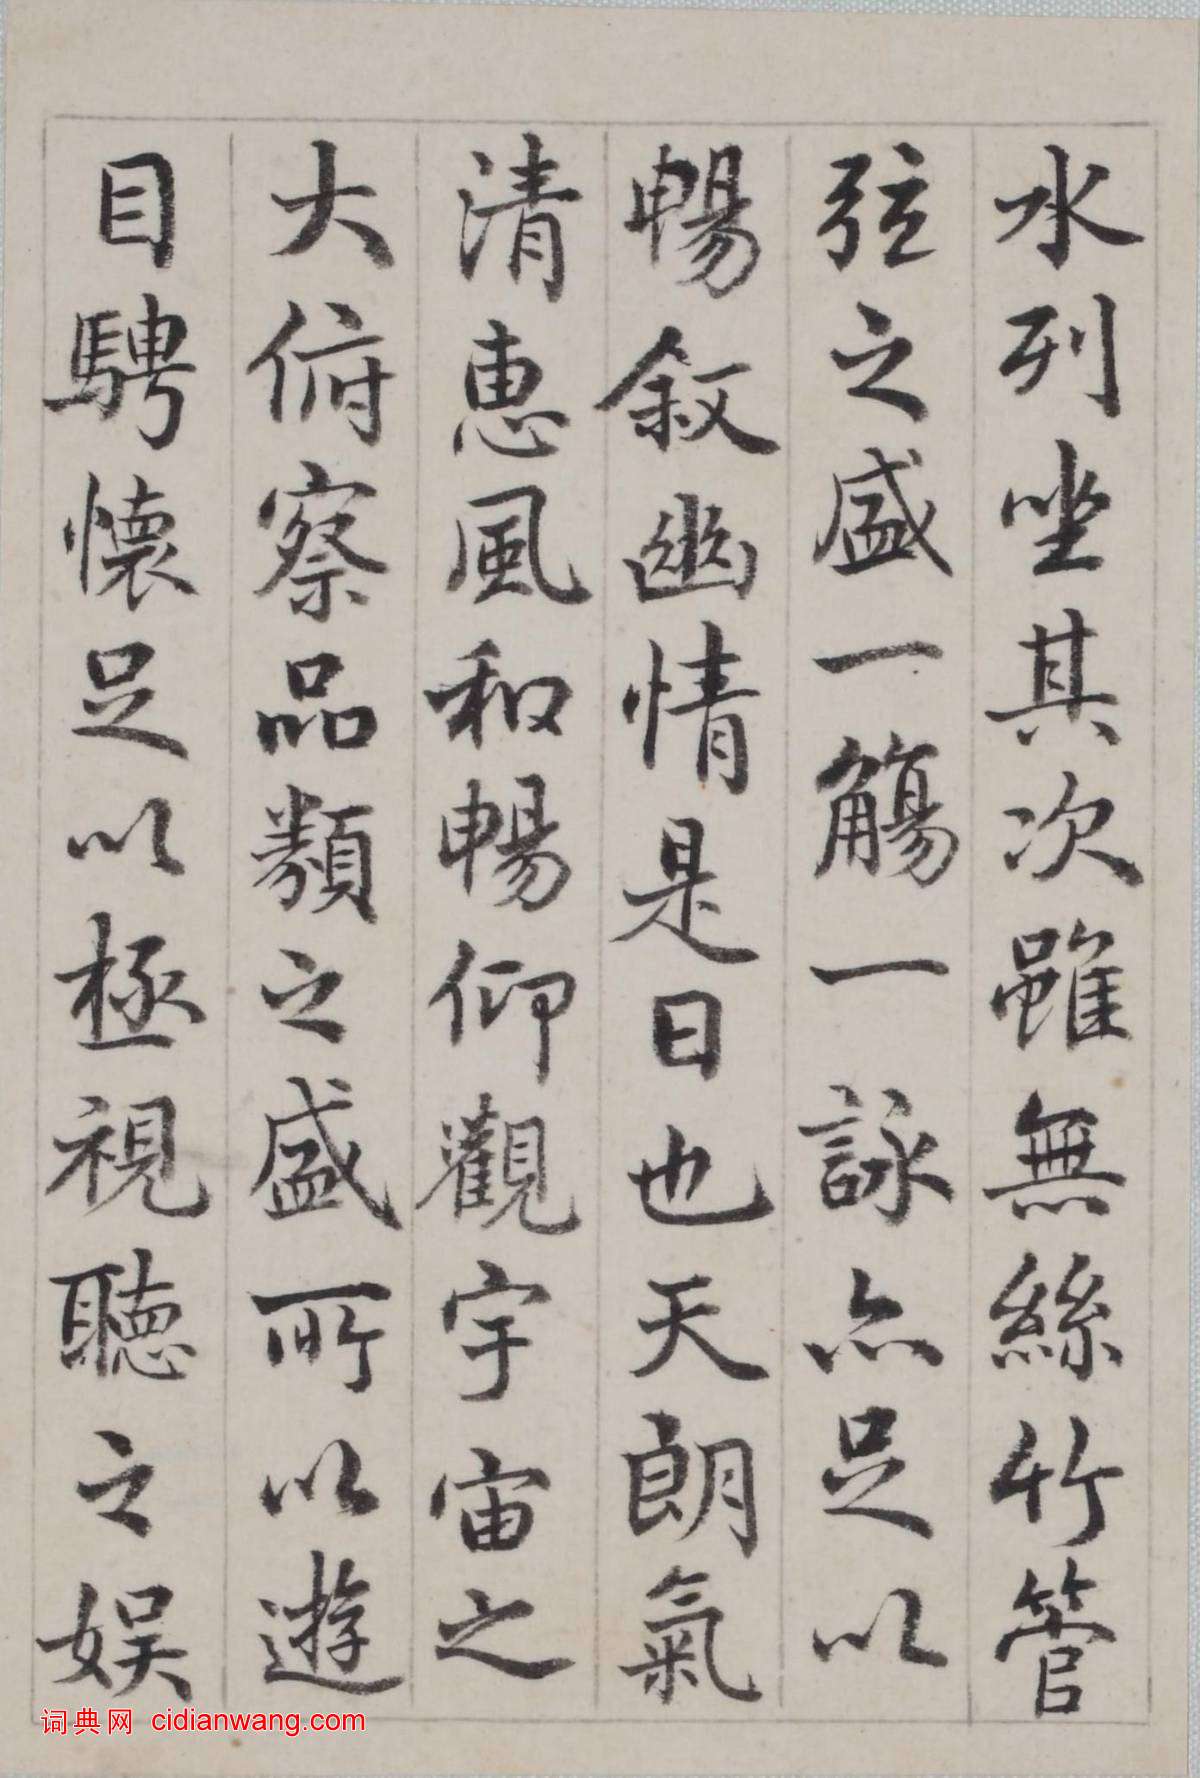 水列坐其次雖無絲竹管
弦之盛一觴一詠亦足以
暢敘幽情是日也天朗氣
清惠風和暢仰觀宇宙之
大俯察品類之盛所以遊
目騁懷足以極視聽之娛
词典网 cidianwang.com